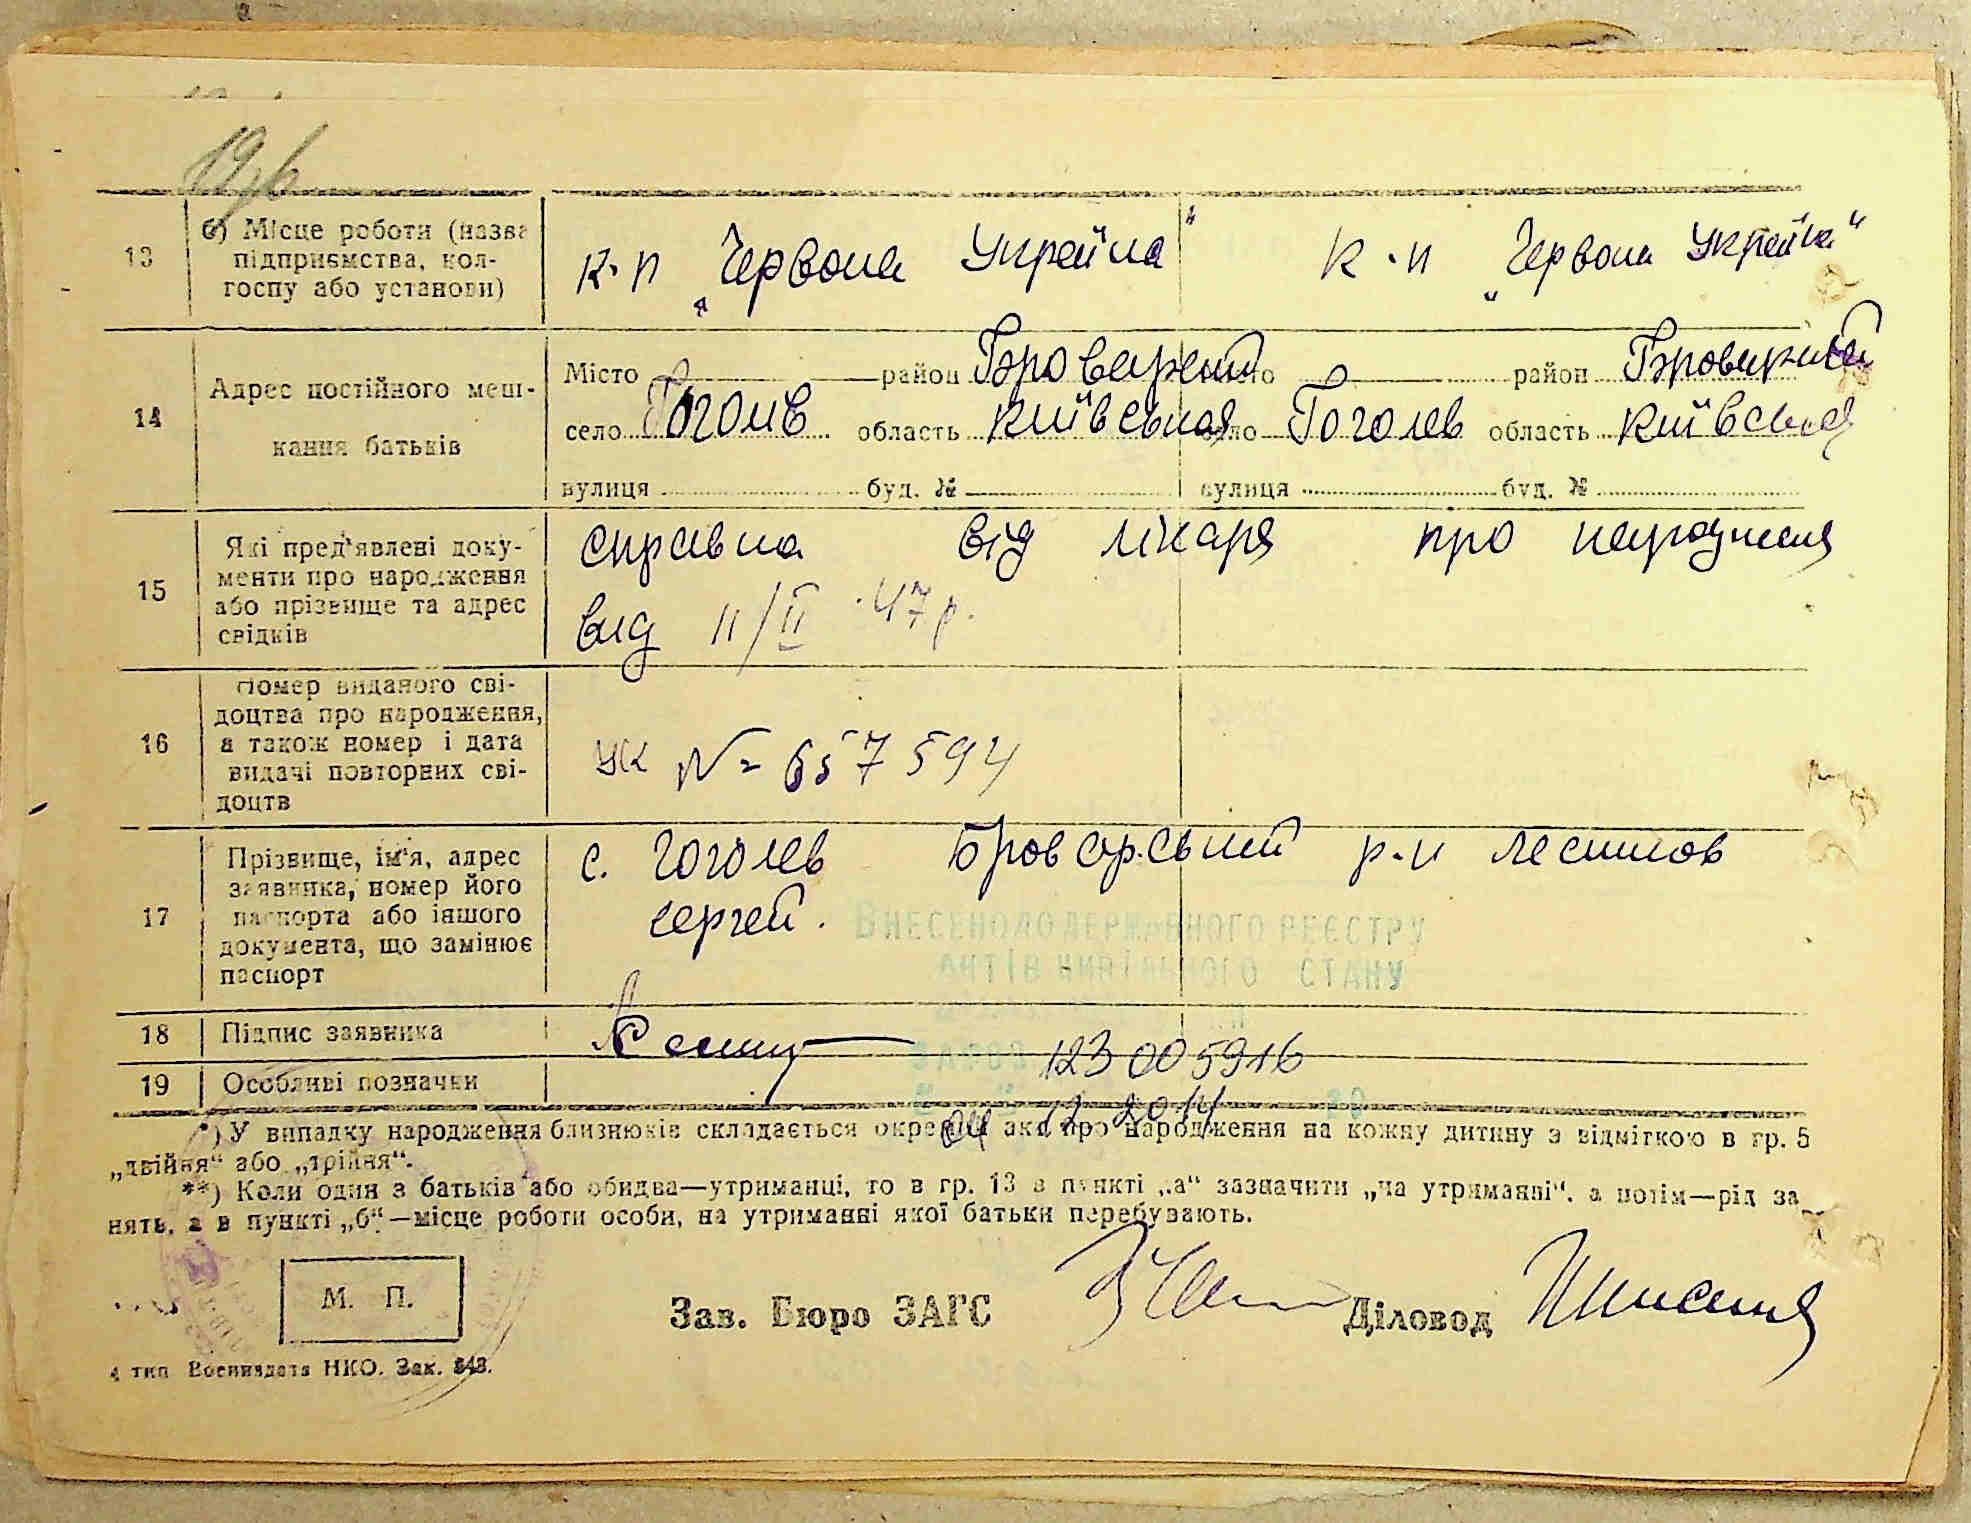 19
13
б) Місце роботи (назва
підприємства, кол-
госпу або установи)
к-п „Червона Україна“
к-п „Червона Україна“
14
Адрес постійного меш-
кання батьків
Місто район Броварский
село Гоголів область київська
вулиця буд. №
Місто район Броварский
село Гоголев область київська
вулиця буд. №
15
Які пред'явлені доку-
менти про народження
або прізвище та адрес
свідків
справка від лікаря про народженя
від 11/II 47 р.
16
Номер виданого сві-
доцтва про народження,
а також номер і дата
видачі повторних сві-
доцтв
УК № 657594
17
Прізвище, ім'я, адрес
заявника, номер його
паспорта або іншого
документа, що замінює
паспорт
с. Гоголев Броварський р-н
сергей.
Внесено до Державного реєстру
актів цивільного стану
18
Підпис заявника
19
Особливі позначки
123 005916
04 12 2014
*) У випадку народження близнюків складається окремий акт про народження на кожну дитину з відміткою в гр. 5
„двійня“ або „трійня“.
**) Коли один з батьків або обидва—утриманці, то в гр. 13 в пункті „а“ зазначити „на утриманні“, а потім—рід за
нять, а в пункті „б“—місце роботи особи, на утриманні якої батьки перебувають.
М. П.
Зав. Бюро ЗАГС
Діловод
4 тип Воениздата НКО. Зак. 848.